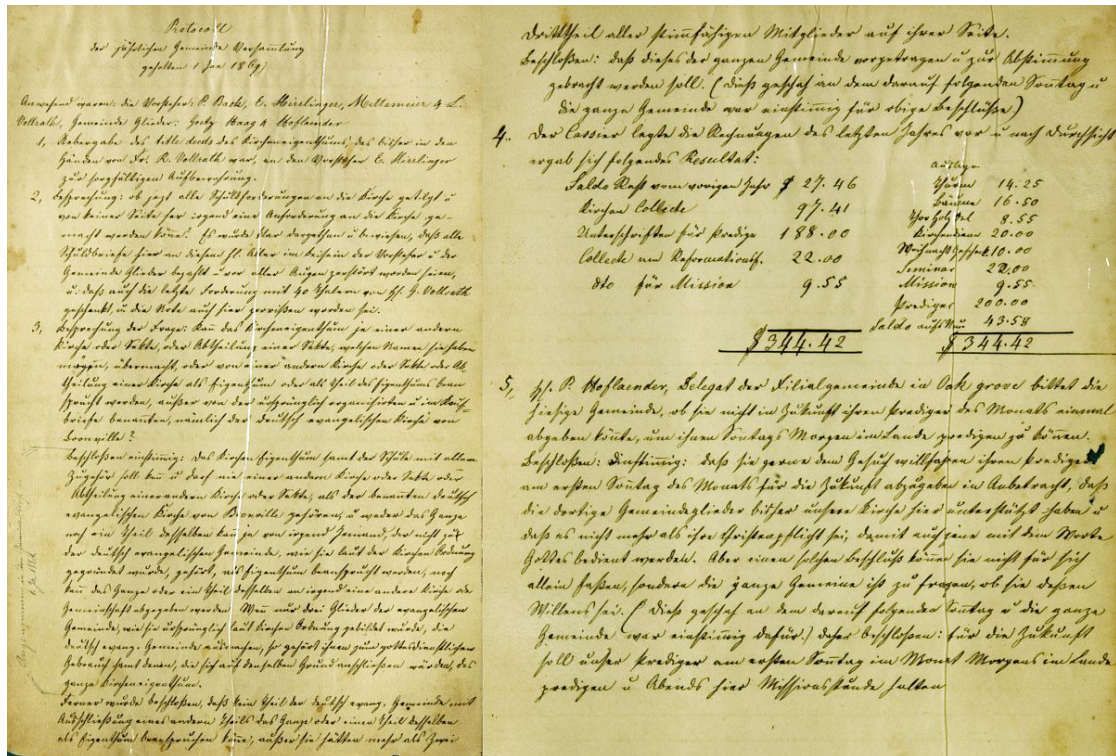 Protocoll
der jährlichen Gemeinde Versamlung
gehalten 1 Jan 1869
Anwesend waren: die Vorsteher: P. Back, E. Hirslinger, & L.
Vollrath, Gemeinde Glieder: Georg Haag & Hoflander
1, Uebergabe des title deeds des Kircheneigenthums, das bisher in den
Händen von Fr. R. Vollrath war, an den Vorsteher E. Hirslinger
zur sorgfältigen Aufbewahrung.
2, Besprechung: ob jezt alle Schuldforderungen an die Kirche getilgt u
von keiner Seite her irgend eine Anforderung an die Kirche ge-
macht werden könne? Es wurde klar dargethan u bewiesen, daß alle
Schuldbriefe hier an diesem im Beisein der Vorsteher u der
Gemeinde Glieder bezahlt u vor aller Augen zerstört worden seien,
u. daß auch die letzte Forderung mit 40 Thalern von H. G. Vollrath
geschenkt, u die Note auch hier zerrissen worden sei.
3, Besprechung der Frage: Kan das Kircheneigenthum je einer andern
Kirche oder Sekte, oder Abtheilung einer Sekte, welchen Namen sie haben
mögen, übermacht, oder von einer andern Kirche oder Sekte oder Ab
theilung einer Kirche als Eigenthum oder als Theil des Eigenthums bean
sprucht werden, außer von der ursprünglich organisirten u im Kauf-
briefe benannten, nämlich der deutsch evangelischen Kirche von
Boonville?
Beschloßen einstimig: Das Kirchen Eigenthum samt der Schule mit allem
Zugehör soll kan u darf nie einer andern Kirche oder Sekte oder
Abtheilung einer andern Kirche oder Sekte, als der benannten deutsch
evangelischen Kirche von Boonville gehören, u weder das Ganze
noch ein Theil desselben kan je von irgend Jemand, der nicht zur
der deutsch evangelischen Gemeinde, wie sie laut der Kirchen Ordnung
gegründet wurde, gehört, als Eigenthum beansprucht werden, noch
kan das Ganze oder ein Theil desselben an irgend eine andere Kirche oder
Gemeinschaft abgegeben werden. Wen nur drei Glieder der evangelischen
Gemeinde, wie sie ursprünglich laut Kirchen Ordnung gebildet wurde, die
deutsch evang. Gemeinde ausmachen, so gehört ihnen zum gottesdienstlichen
Gebrauch samt denen, die sich auf denselben Grund anschließen würden, das
ganze Kircheneigenthum.
Ferner wurde beschloßen, daß kein Theil der deutsch evang. Gemeinde mit
Ausschließung eines andern Theils das Ganze oder einen Theil desselben
als Eigenthum beanspruchen köne, außer sie hätten mehr als Zwei
Dritttheil aller stimfähigen Mitglieder auf ihrer Seite.
Beschloßen: daß dieses der ganzen Gemeinde vorgetragen u zur Abstimmung
gebracht werden soll. (Dieß geschah an dem darauf folgenden Sontag u
die ganze Gemeinde war einstimig für obige Beschlüße)
4. Der Cassier legte die Rechnungen des letzten Jahres vor u nach Durchsicht
ergab sich folgendes Resultat:
Saldo Rest vom vorigen Jahr $ 27.46
Kirchen Collecte 97.41
Unterschriften für Prediger 188.00
Collecte am Reformationsf. 22.00
dto für Mission 9.55
$ 344.42
Auslage
Thurm 14.25
Bäume 16.50
8.55
Kirchendiener 20.00
Weihnachtsgeschenk 10.00
Seminar 22.00
Mission 9.55
Prediger 200.00
Saldo aufs Neue 43.58
$ 344.42
5, H. P. Hoflaender, Delegat der Filialgemeinde in Oak grove bittet die
hiesige Gemeinde, ob sie nicht in Zukunft ihren Prediger des Monats einmal
abgeben könte, um ihnen Sontags Morgen im Lande predigen zu könen.
Beschloßen: Einstimig: daß sie gerne dem Gesuch willfahren ihren Prediger
am ersten Sontag des Monats für die Zukunft abzugeben in Anbetracht, daß
die dortige Gemeindeglieder bisher unsere Kirche hier unterstützt haben u
daß es nicht mehr als ihre Christenpflicht sei, damit auch jene mit dem Worte
Gottes bedient werden. Aber einen solchen Beschluß könen sie nicht für sich
allein faßen, sondern die ganze Gemeine ist zu fragen, ob sie deßen
Willens sei. (Dieß geschah an dem darauf folgenden Sontag u die ganze
Gemeinde war einstimig dafür) daher beschloßen: für die Zukunft
soll unser Prediger am ersten Sontag im Monat Morgens im Lande
predigen u Abends hier Missionsstunde halten